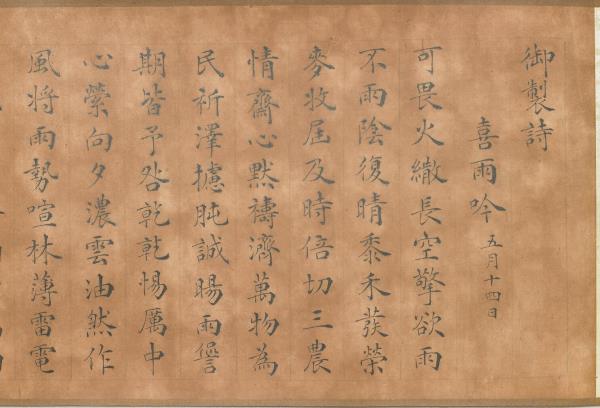 御製詩
喜雨吟 五月十四日
可畏火繖長空擎欲雨
不雨陰復晴黍禾發榮
麥收屆及時倍切三農
情齋心默禱濟萬物為
民祈澤攄肫誠暘雨諐
期皆予咎乾乾惕厲中
心縈向夕濃雲油然作
風將雨勢喧林薄雷電